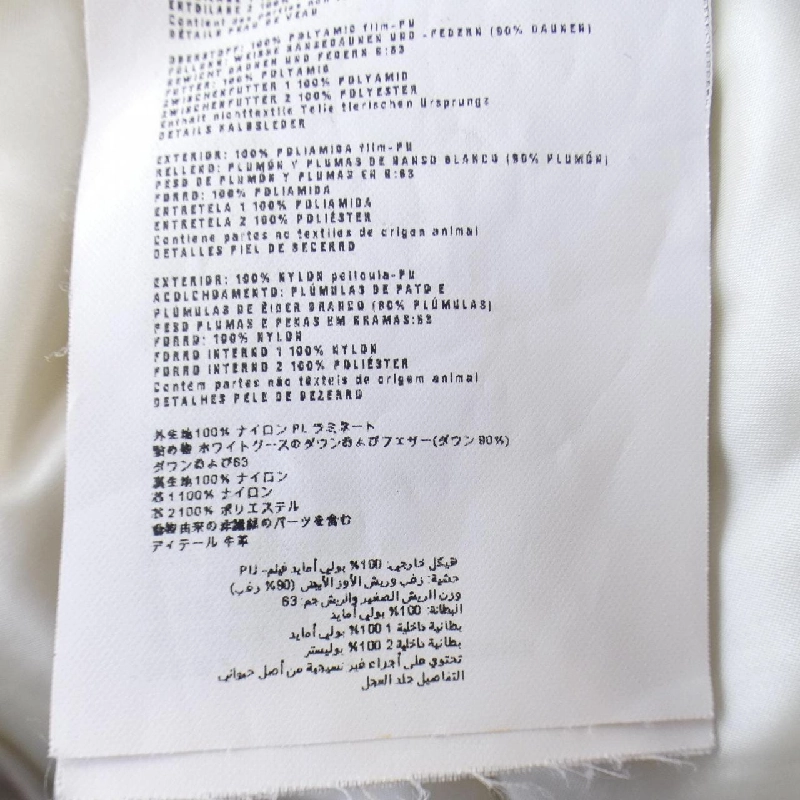 Contient des parties non
DÉTAILS PEAU DE VEAU
OBERSTOFF: 100% POLYAMID film-PU
FÜLLUNG: WEISSE GÄNSEDAUNEN UND -FEDERN (90% DAUNEN)
GEWICHT DAUNEN UND FEDERN G:63
FUTTER: 100% POLYAMID
ZWISCHENFUTTER 1 100% POLYAMID
ZWISCHENFUTTER 2 100% POLYESTER
Enthält nichttextile Teile tierischen Ursprungs
DETAILS KALBSLEDER
EXTERIOR: 100% POLIAMIDA film-PU
RELLENO: PLUMÓN Y PLUMAS DE GANSO BLANCO (90% PLUMÓN)
PESO DE PLUMÓN Y PLUMAS EN G:63
FORRO: 100% POLIAMIDA
ENTRETELA 1 100% POLIAMIDA
ENTRETELA 2 100% POLIÉSTER
Contiene partes no textiles de origen animal
DETALLES PIEL DE BECERRO
EXTERIOR: 100% NYLON película-PU
ACOLCHOAMENTO: PLÚMULAS DE PATO E
PLÚMULAS DE ÉIDER BRANCO (90% PLÚMULAS)
PESO PLUMAS E PENAS EM GRAMAS:63
FORRO: 100% NYLON
FORRO INTERNO 1 100% NYLON
FORRO INTERNO 2 100% POLIÉSTER
Contém partes não têxteis de origem animal
DETALHES PELE DE BEZERRO
外生地100% ナイロン PU ラミネート
詰め物 ホワイトグースのダウンおよびフェザー(ダウン 90%)
ダウンおよび63
裏生地100% ナイロン
芯1100% ナイロン
芯2100% ポリエステル
動物由来の非繊維のパーツを含む
ディテール 牛革
هيكل خارجي: 100% بولي أمايد فيلم- PU
حشية: زغب وريش الأوز الأبيض (90% زغب)
وزن الريش الصغير والريش جم: 63
البطانة: 100% بولي أمايد
بطانية داخلية 1 100% بولي أمايد
بطانية داخلية 2 100% بوليستر
تحتوي على أجزاء غير نسيجية من أصل حيواني
التفاصيل جلد العجل